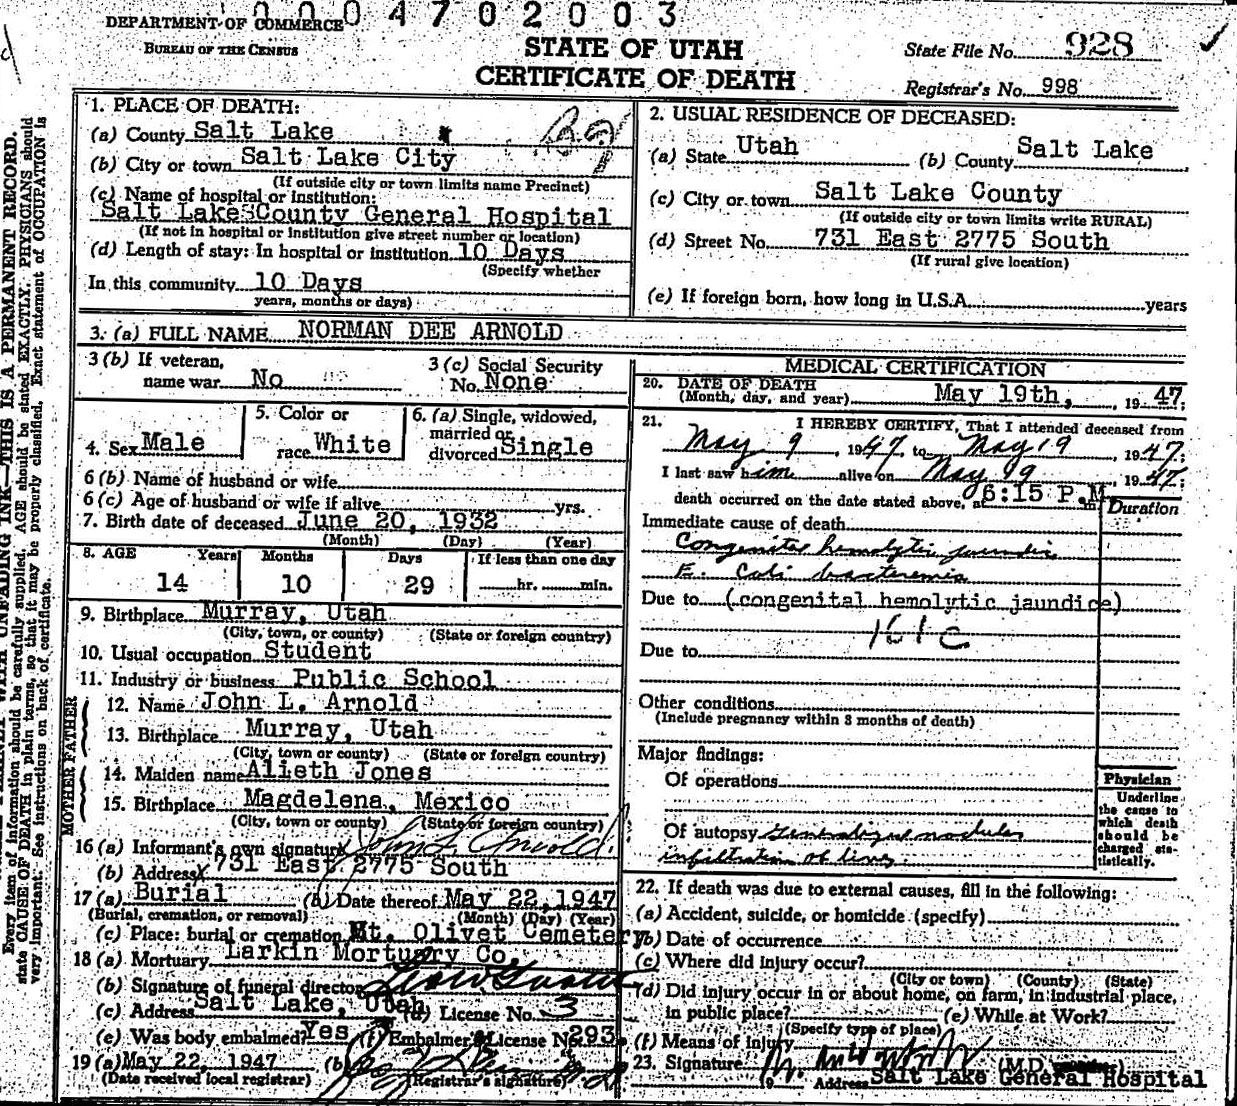 0004702003
DEPARTMENT OF COMMERCE
BUREAU OF THE CENSUS
STATE OF UTAH
CERTIFICATE OF DEATH
State File No. 928
Registrar's No. 998
1. PLACE OF DEATH:
(a) County Salt Lake
(b) City or town Salt Lake City
(If outside city or town limits name Precinct)
(c) Name of hospital or institution:
Salt Lake County General Hospital
(If not in hospital or institution give street number or location)
(d) Length of stay: In hospital or institution 10 Days
(Specify whether
In this community 10 Days
years, months or days)
2. USUAL RESIDENCE OF DECEASED:
(a) State Utah (b) County Salt Lake
(c) City or town Salt Lake County
(If outside city or town limits write RURAL)
(d) Street No. 731 East 2775 South
(If rural give location)
(e) If foreign born, how long in U.S.A. years
3. (a) FULL NAME NORMAN DEE ARNOLD
3 (b) If veteran,
name war No
3 (c) Social Security
No. None
4. Sex Male
5. Color or
race White
6. (a) Single, widowed,
married or
divorced Single
6 (b) Name of husband or wife
6 (c) Age of husband or wife if alive yrs.
7. Birth date of deceased June 20, 1932
(Month) (Day) (Year)
8. AGE Years Months Days If less than one day
14 10 29 hr. min.
9. Birthplace Murray, Utah
(City, town, or county) (State or foreign country)
10. Usual occupation Student
11. Industry or business Public School
FATHER
12. Name John L. Arnold
13. Birthplace Murray, Utah
(City, town or county) (State or foreign country)
MOTHER
14. Maiden name Alieth Jones
15. Birthplace Magdelena, Mexico
(City, town or county) (State or foreign country)
16 (a) Informant's own signature John L. Arnold
(b) Address 731 East 2775 South
17 (a) Burial (b) Date thereof May 22, 1947
(Burial, cremation, or removal) (Month) (Day) (Year)
(c) Place: burial or cremation Mt. Olivet Cemetery
18 (a) Mortuary Larkin Mortuary Co.
(b) Signature of funeral director
(c) Address Salt Lake, Utah (d) License No. 3
(e) Was body embalmed? Yes (f) Embalmer's License No. 293
19 (a) May 22, 1947 (b)
(Date received local registrar) (Registrar's signature)
MEDICAL CERTIFICATION
20. DATE OF DEATH
(Month, day, and year) May 19th, 1947;
21. I HEREBY CERTIFY, That I attended deceased from
May 9, 1947, to May 19, 1947;
I last saw him alive on May 19, 1947;
death occurred on the date stated above, at 6:15 P.M.
Duration
Immediate cause of death
Congenital hemolytic jaundice
E. Coli bacteremia
Due to (congenital hemolytic jaundice)
161c
Due to
Other conditions
(Include pregnancy within 3 months of death)
Major findings:
Of operations
Of autopsy nodular
infiltration of liver
Physician
Underline
the cause to
which death
should be
charged sta-
tistically.
22. If death was due to external causes, fill in the following:
(a) Accident, suicide, or homicide (specify)
(b) Date of occurrence
(c) Where did injury occur?
(City or town) (County) (State)
(d) Did injury occur in or about home, on farm, in industrial place,
in public place? (e) While at Work?
(Specify type of place)
(f) Means of injury
23. Signature (M.D.
Address Salt Lake General Hospital
WITH UNFADING INK—THIS IS A PERMANENT RECORD.
Every item of information should be carefully supplied. AGE should be stated EXACTLY. PHYSICIANS should
state CAUSE OF DEATH in plain terms, so that it may be properly classified. Exact statement of OCCUPATION is
very important. See instructions on back of certificate.